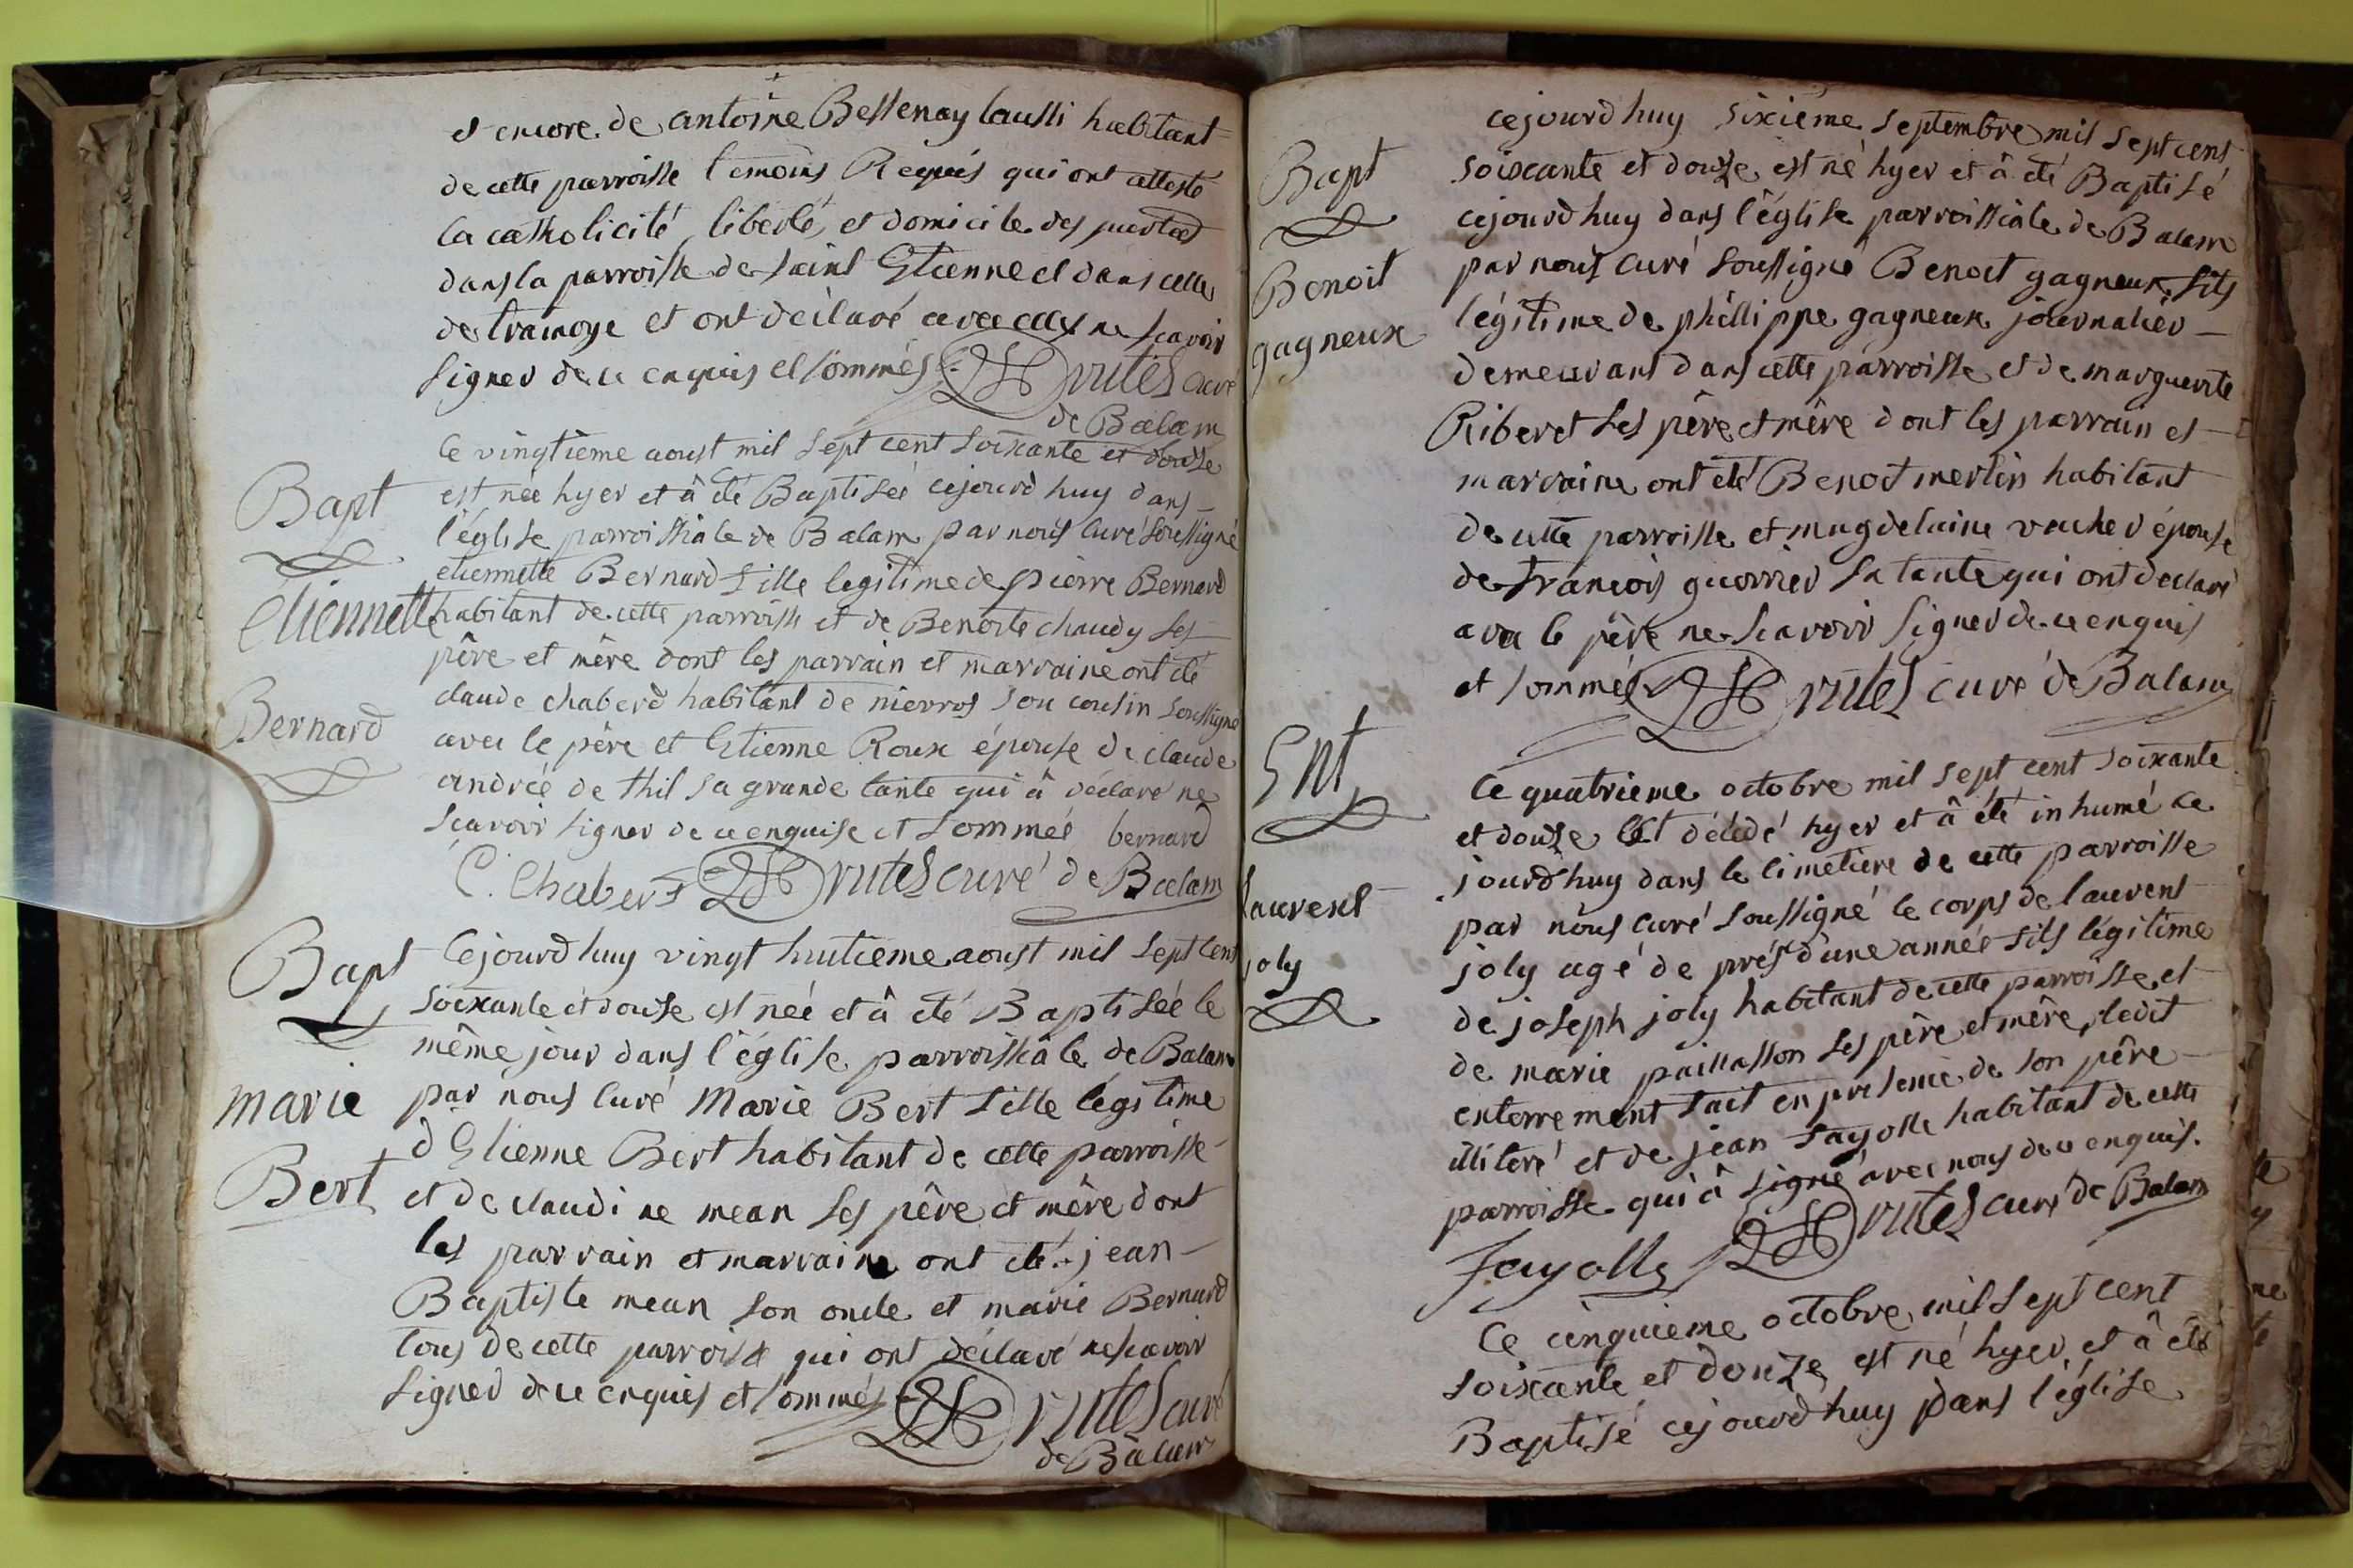 et encore de antoine Bessenay laussi habitant
de cette parroisse temoins Requis qui ont attesté
la catholicité, liberté, et domicile des parties
dans la parroisse de saint Etienne et dans celle
de tramoye et ont déclaré avec elles ne scavoir
signer de ce enquis et sommés Drutel curé
de Balam
Bapt
Etiennette
Bernard
Ce vingtième aoust mil sept cent soixante et douse
est née hyer et â été Baptisée cejourd huy dans
l'église parroissiâle de Balam par nous curé soussigné
etiennette Bernard fille legitime de pierre Bernard
habitant de cette parroisse et de Benoite chaudy ses
père et mère dont les parrain et marraine ont été
claude chaberd habitant de nievros son cousin soussigné
avec le père et Etienne Roux épouse de claude
andrée de thil sa grande tante qui â déclaré ne
scavoir signer de ce enquise et sommée bernard
C. Chabert Drutel curé de Balam
Bapt
marie
Bert
Cejourd huy vingt huitieme aoust mil sept cent
soixante et douse est née et â été Baptisée le
même jour dans l'église parroissiâle de Balam
par nous curé Marie Bert fille légitime
d'Etienne Bert habitant de cette parroisse
et de claudine mean ses père et mère dont
les parrain et marraine ont été jean
Baptiste mean son oncle et marie Bernard
tous de cette parroisse qui ont déclaré ne scavoir
signer de ce enquis et sommés Drutel curé
de Balam
Bapt
Benoit
gagneux
cejourd huy sixieme septembre mil sept cent
soixante et douze est né hyer et â été Baptisé
cejourd huy dans l'église parroissiâle de Balam
par nous curé soussigné Benoit gagneux fils
légitime de phillippe gagneux journalier
demeurant dans cette parroisse et de marguerite
Riberet ses père et mère dont les parrain et
marraine ont été Benoit merlin habitant
de cette parroisse et magdelaine vacher épouse
de francois guerrier sa tante qui ont declaré
avec le père ne scavoir signer de ce enquis
et sommés Drutel curé de Balam
Ent
laurent
joly
Ce quatrieme octobre mil sept cent soixante
et douze est décédé hyer et â été inhumé ce
jourd'huy dans le cimetiere de cette parroisse
par nous curé soussigné le corps de laurent
joly agé de près d'une année fils légitime
de joseph joly habitant de cette parroisse et
de marie paillasson ses père et mère, ledit
enterrement fait en presence de son père
illiteré et de jean fayolle habitant de cette
parroisse qui â signé avec nous de ce enquis.
fayolle Drutel curé de Balam
Ce cinquieme octobre mil sept cent
soixante et douze est né hyer et â été
Baptisé cejourd huy dans l'église